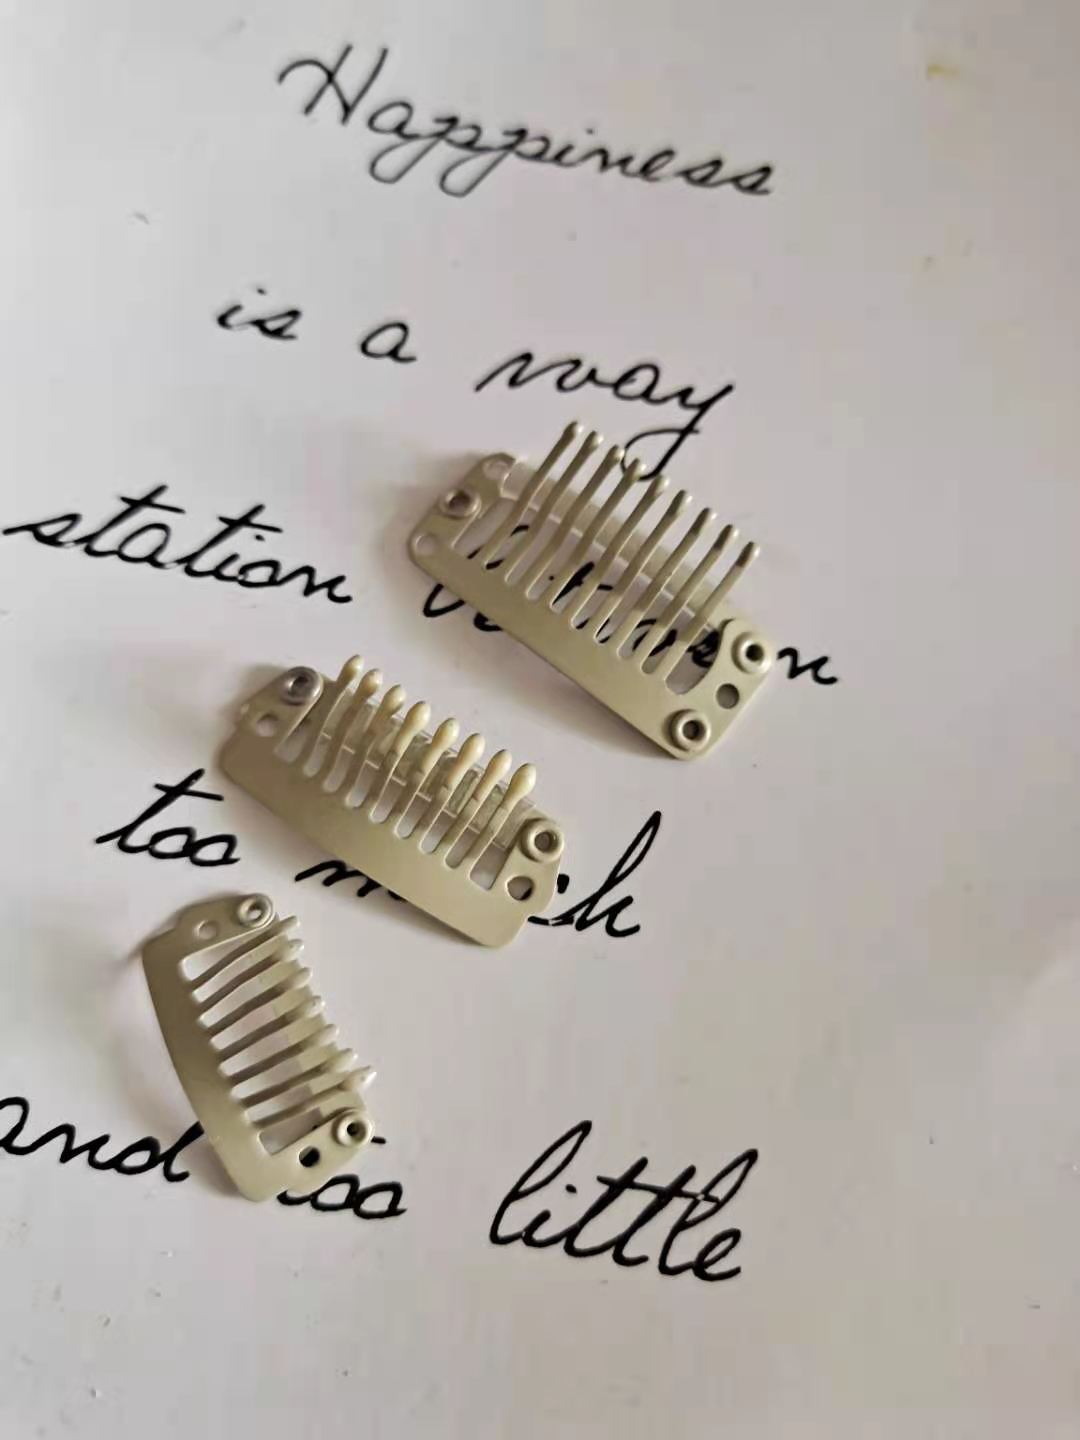 Happiness
is a way
station
too
and too little